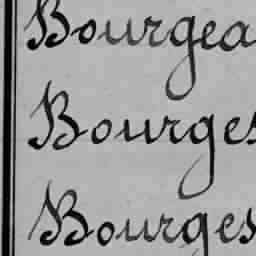 Bourgea
Bourges
Bourges